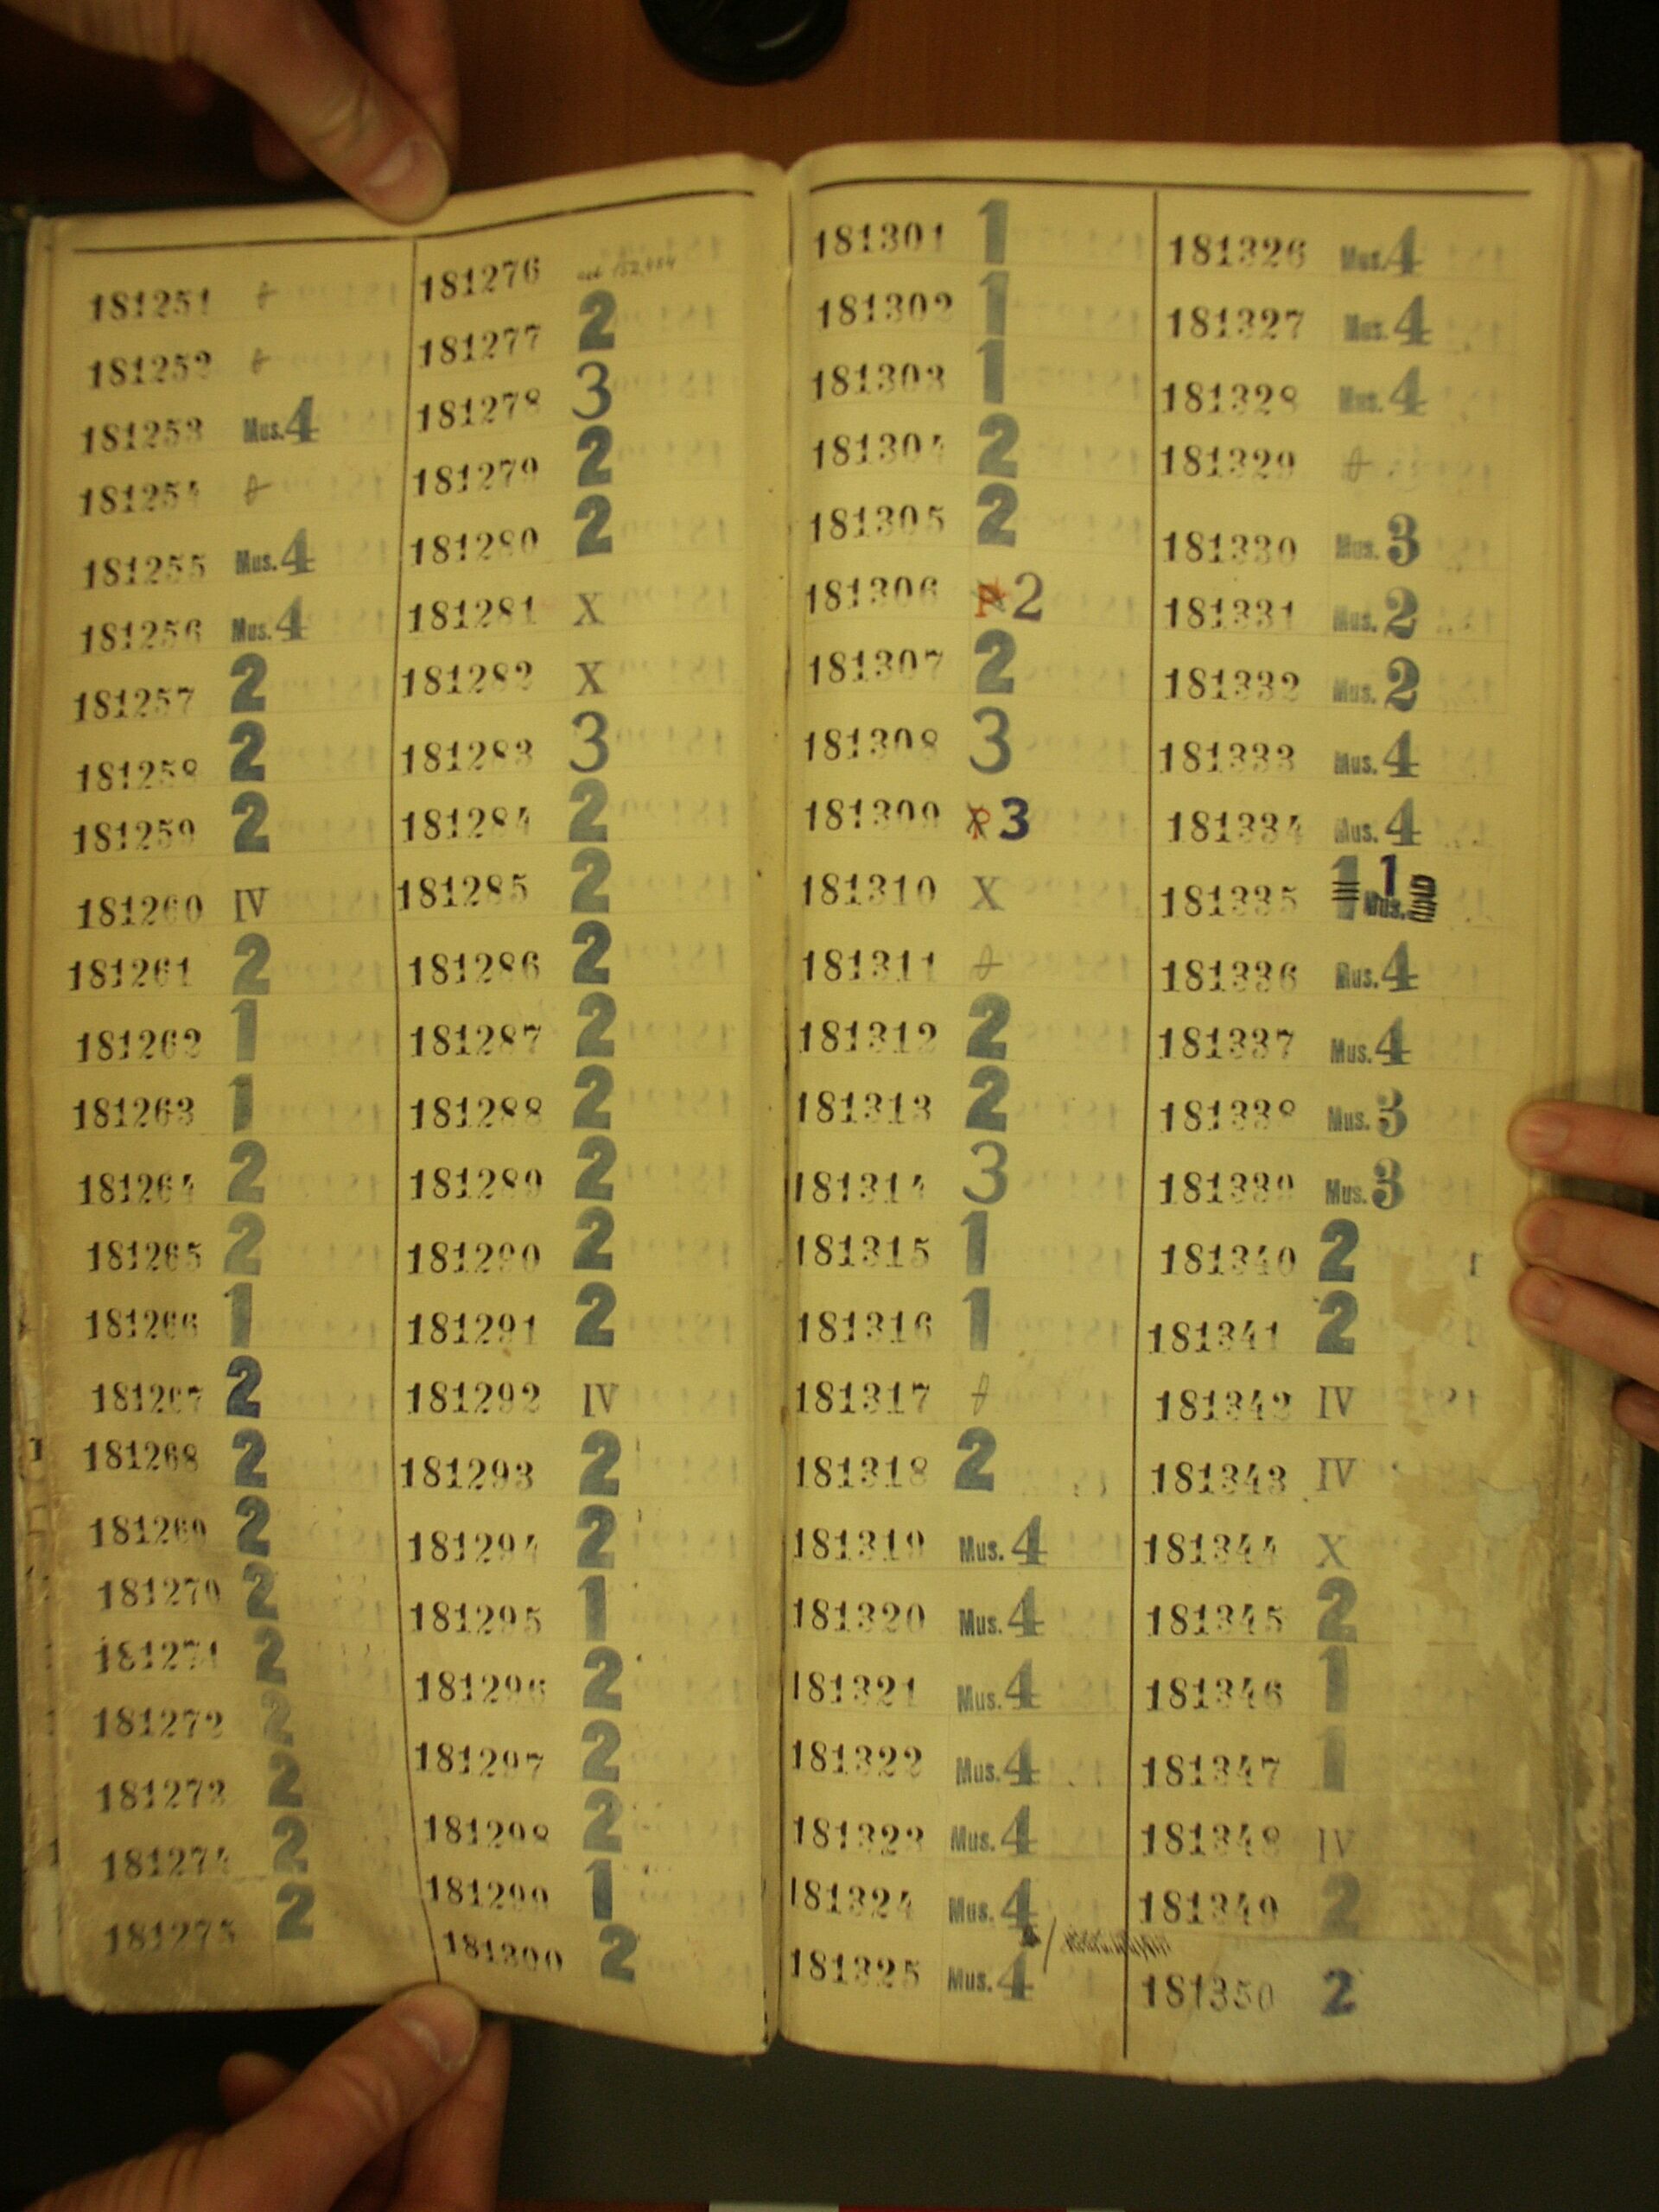 181251
181252
181253 Mus. 4
181254
181255 Mus. 4
181256 Mus. 4
181257 2
181258 2
181259 2
181260 IV
181261 2
181262 1
181263 1
181264 2
181265 2
181266 1
181267 2
181268 2
181269 2
181270 2
181271 2
181272 2
181273 2
181274 2
181275 2
181276
181277 2
181278 3
181279 2
181280 2
181281 X
181282 X
181283 3
181284 2
181285 2
181286 2
181287 2
181288 2
181289 2
181290 2
181291 2
181292 IV
181293 2
181294 2
181295 1
181296 2
181297 2
181298 2
181299 1
181300 2
181301 1
181302 1
181303 1
181304 2
181305 2
181306 2
181307 2
181308 3
181309 3
181310 X
181311
181312 2
181313 2
181314 3
181315 1
181316 1
181317
181318 2
181319 Mus. 4
181320 Mus. 4
181321 Mus. 4
181322 Mus. 4
181323 Mus. 4
181324 Mus. 4
181325 Mus. 4
181326 Mus. 4
181327 Mus. 4
181328 Mus. 4
181329
181330 Mus. 3
181331 Mus. 2
181332 Mus. 2
181333 Mus. 4
181334 Mus. 4
181335 1 Mus.
181336 Mus. 4
181337 Mus. 4
181338 Mus. 3
181339 Mus. 3
181340 2
181341 2
181342 IV
181343 IV
181344 X
181345 2
181346 1
181347 1
181348 IV
181349 2
181350 2